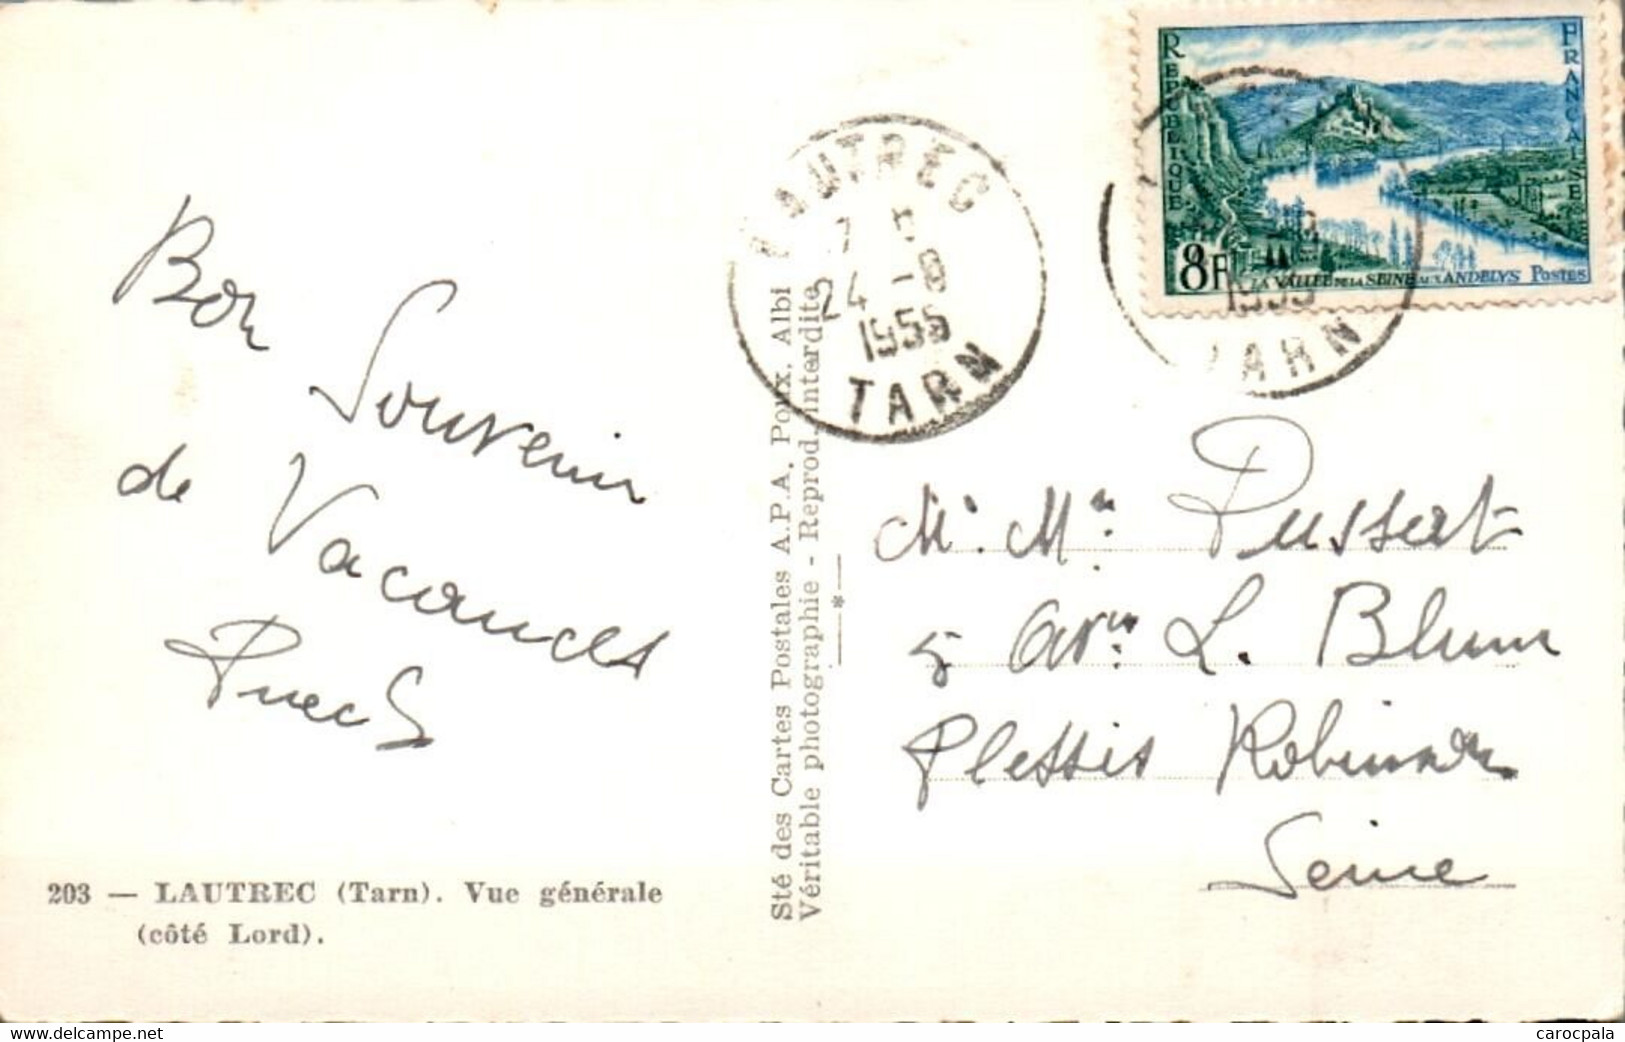 Bon
Souvenir
de Vacances
Puech
203 — LAUTREC (Tarn). Vue générale
(côté Lord).
Sté des Cartes Postales A.P.A. Poux, Albi
Véritable photographie - Reprod. interdite
LAUTREC
24 -8
1955
TARN
REPUBLIQUE
FRANÇAISE
8F
LA VALLEE DE LA SEINE AUX ANDELYS POSTES
1955
TARN
Mr. Mme Pussert
5 Avn L. Blum
Plessis Robinson
Seine
carocpala
https://www.delcampe.net